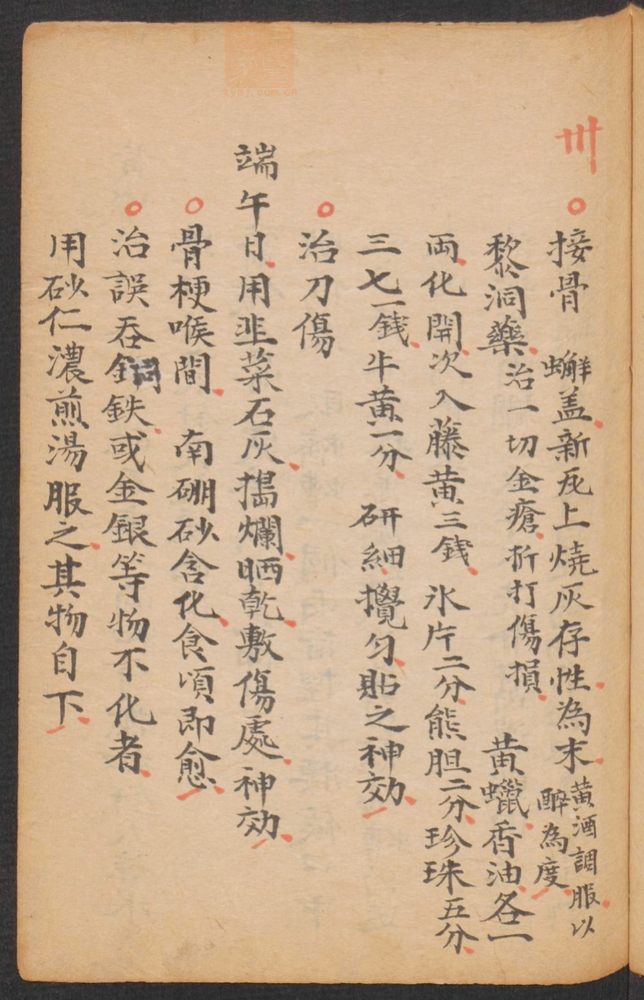 卅
接骨 蠏盖新瓦上燒灰存性為末黄酒調服以醉為度
黎洞藥治一切金瘡折打傷損 黄蠟香油各一
両化開次入藤黄三錢氷片二分熊胆二分珍珠五分
三七一錢牛黄一分 研細攪匀貼之神効
治刀傷
端午日用韭菜石灰搗爛晒乾敷傷處神効
骨梗喉間 南硼砂含化食頃即愈
治誤吞銅鉄或金銀等物不化者
用砂仁濃煎湯服之其物自下